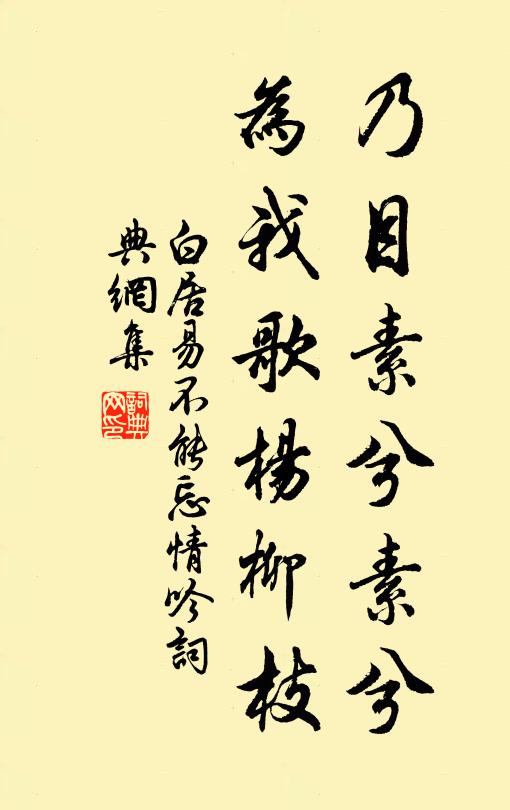 乃目素兮素兮
為我歌楊柳枝
白居易不能忘情吟詞
典網集
詞典網印